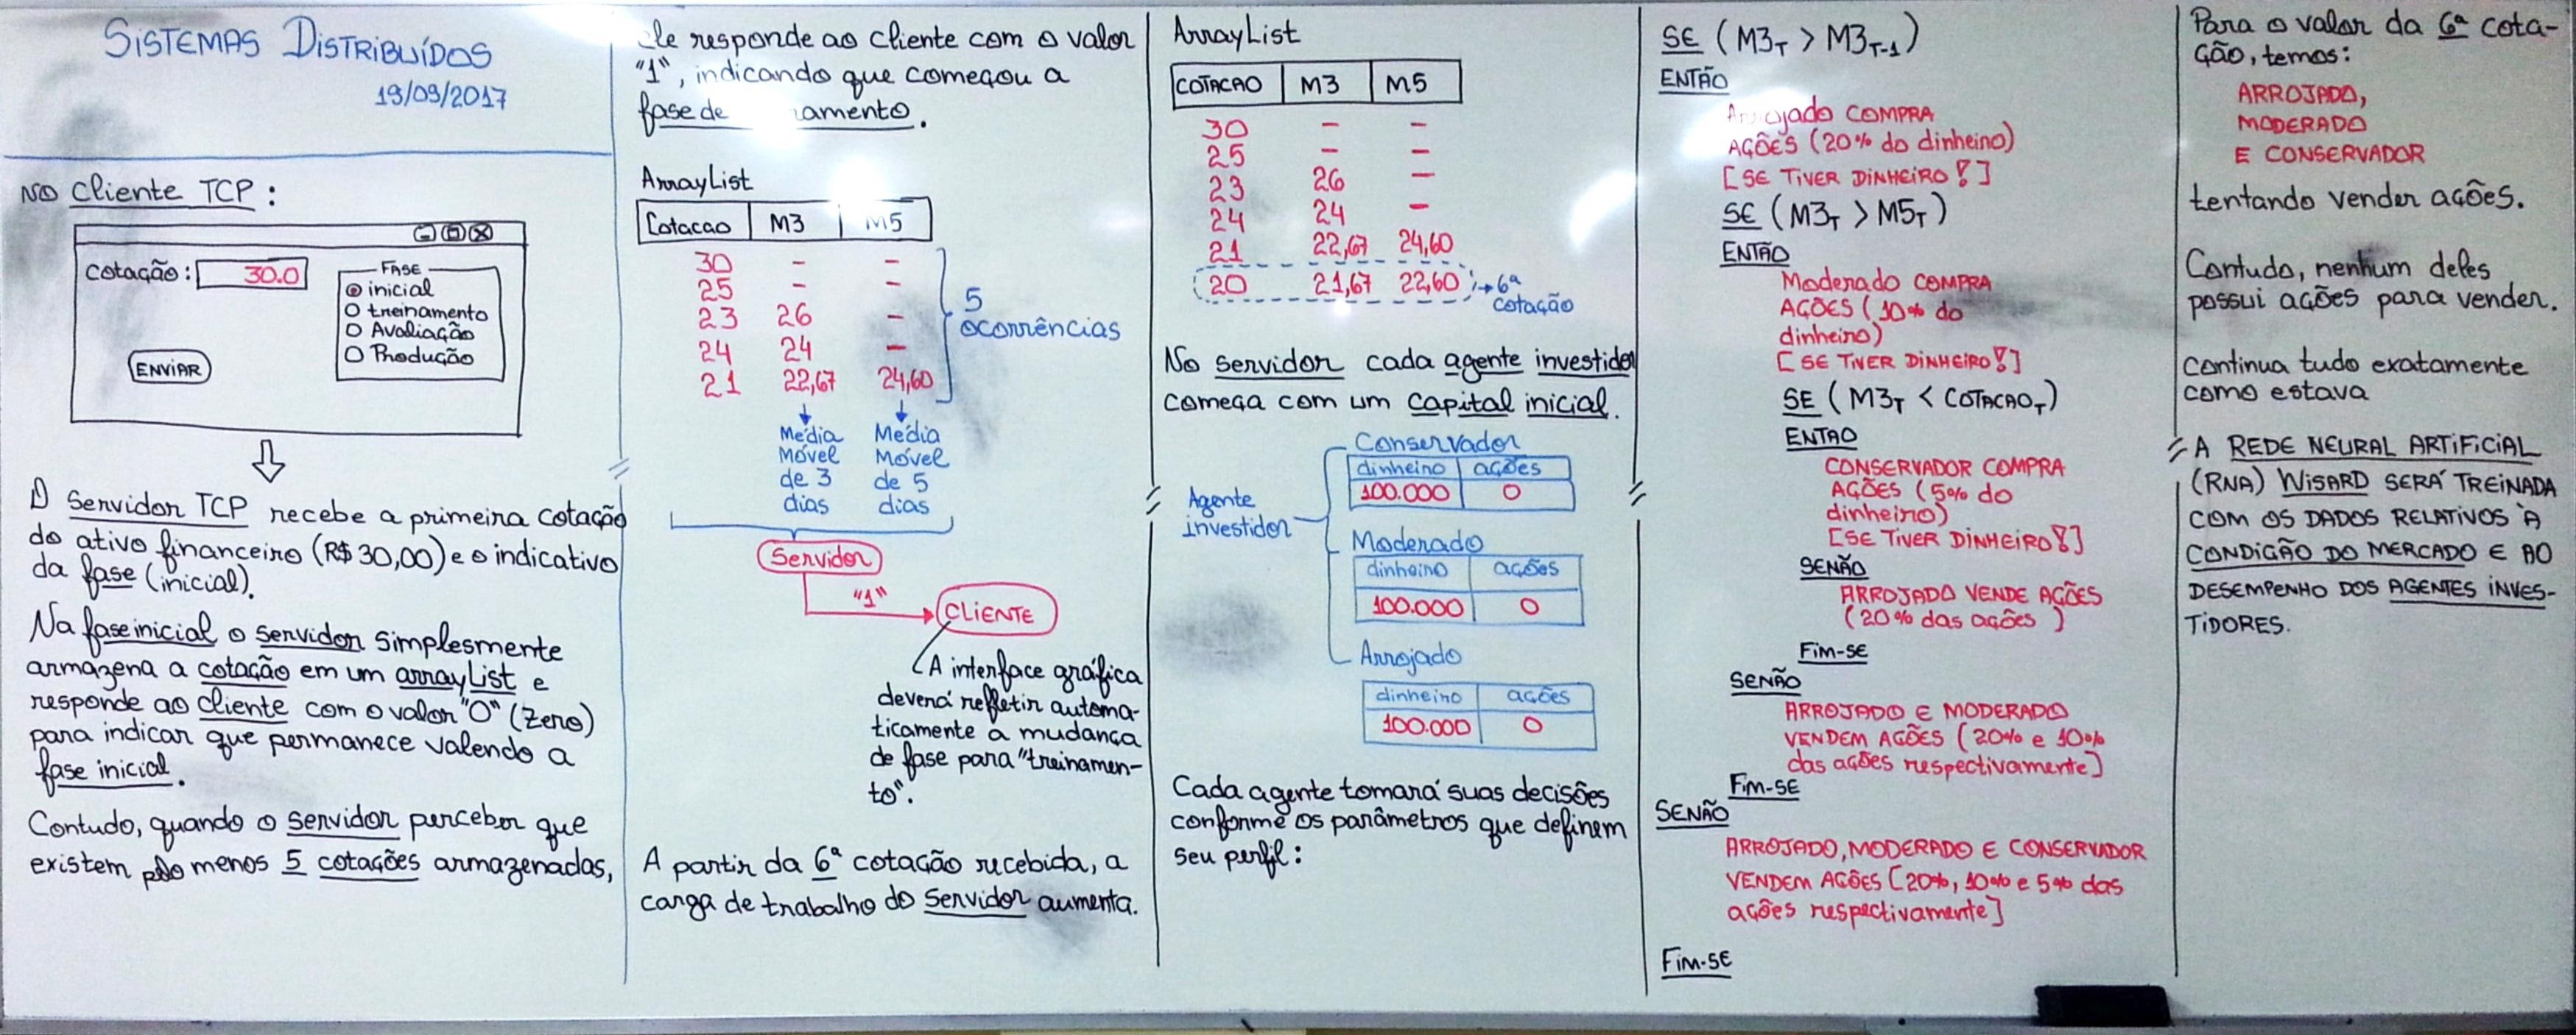 SISTEMAS DISTRIBUÍDOS
19/09/2017
NO Cliente TCP:
cotação: 30.0
FASE
inicial
treinamento
Avaliação
Produção
ENVIAR
O Servidor TCP recebe a primeira cotação
do ativo financeiro (R$ 30,00) e o indicativo
da fase (inicial).
Na fase inicial o servidor simplesmente
armazena a cotação em um arrayList e
responde ao cliente com o valor "0" (zero)
para indicar que permanece valendo a
fase inicial.
Contudo, quando o servidor perceber que
existem pelo menos 5 cotações armazenadas,
ele responde ao cliente com o valor
"1", indicando que começou a
fase de amento.
ArrayList
Cotacao M3 M5
30 - -
25 - -
23 26 -
24 24 -
21 22,67 24,60
5
ocorrências
Média Móvel de 3 dias
Média Móvel de 5 dias
Servidor
"1"
CLIENTE
A interface gráfica
deverá refletir automa-
ticamente a mudança
de fase para "treinamen-
to".
A partir da 6ª cotação recebida, a
carga de trabalho do Servidor aumenta.
ArrayList
COTACAO M3 M5
30 - -
25 - -
23 26 -
24 24 -
21 22,67 24,60
20 21,67 22,60 → 6ª
cotação
No servidor cada agente investidor
começa com um capital inicial.
Agente
investidor
Conservador
dinheiro ações
100.000 0
Moderado
dinheiro ações
100.000 0
Arrojado
dinheiro ações
100.000 0
Cada agente tomará suas decisões
conforme os parâmetros que definem
seu perfil:
SE (M3T > M3T-1)
ENTÃO
Arrojado COMPRA
AÇÕES (20% do dinheiro)
[SE TIVER DINHEIRO!]
SE (M3T > M5T)
ENTÃO
Moderado COMPRA
AÇÕES (10% do
dinheiro)
[SE TIVER DINHEIRO!]
SE (M3T < COTACAOT)
ENTAO
CONSERVADOR COMPRA
AÇÕES (5% do
dinheiro)
[SE TIVER DINHEIRO!]
SENÃO
ARROJADO VENDE AÇÕES
(20% das ações )
Fim-SE
SENÃO
ARROJADO E MODERADO
VENDEM AÇÕES (20% e 10%
das ações respectivamente)
Fim-SE
SENÃO
ARROJADO, MODERADO E CONSERVADOR
VENDEM AÇÕES (20%, 10% e 5% das
ações respectivamente)
Fim-SE
Para o valor da 6ª cota-
ção, temos:
ARROJADO,
MODERADO
E CONSERVADOR
tentando vender ações.
Contudo, nenhum deles
possui ações para vender.
Continua tudo exatamente
como estava
A REDE NEURAL ARTIFICIAL
(RNA) WISARD SERÁ TREINADA
COM OS DADOS RELATIVOS À
CONDIÇÃO DO MERCADO E AO
DESEMPENHO DOS AGENTES INVES-
TIDORES.